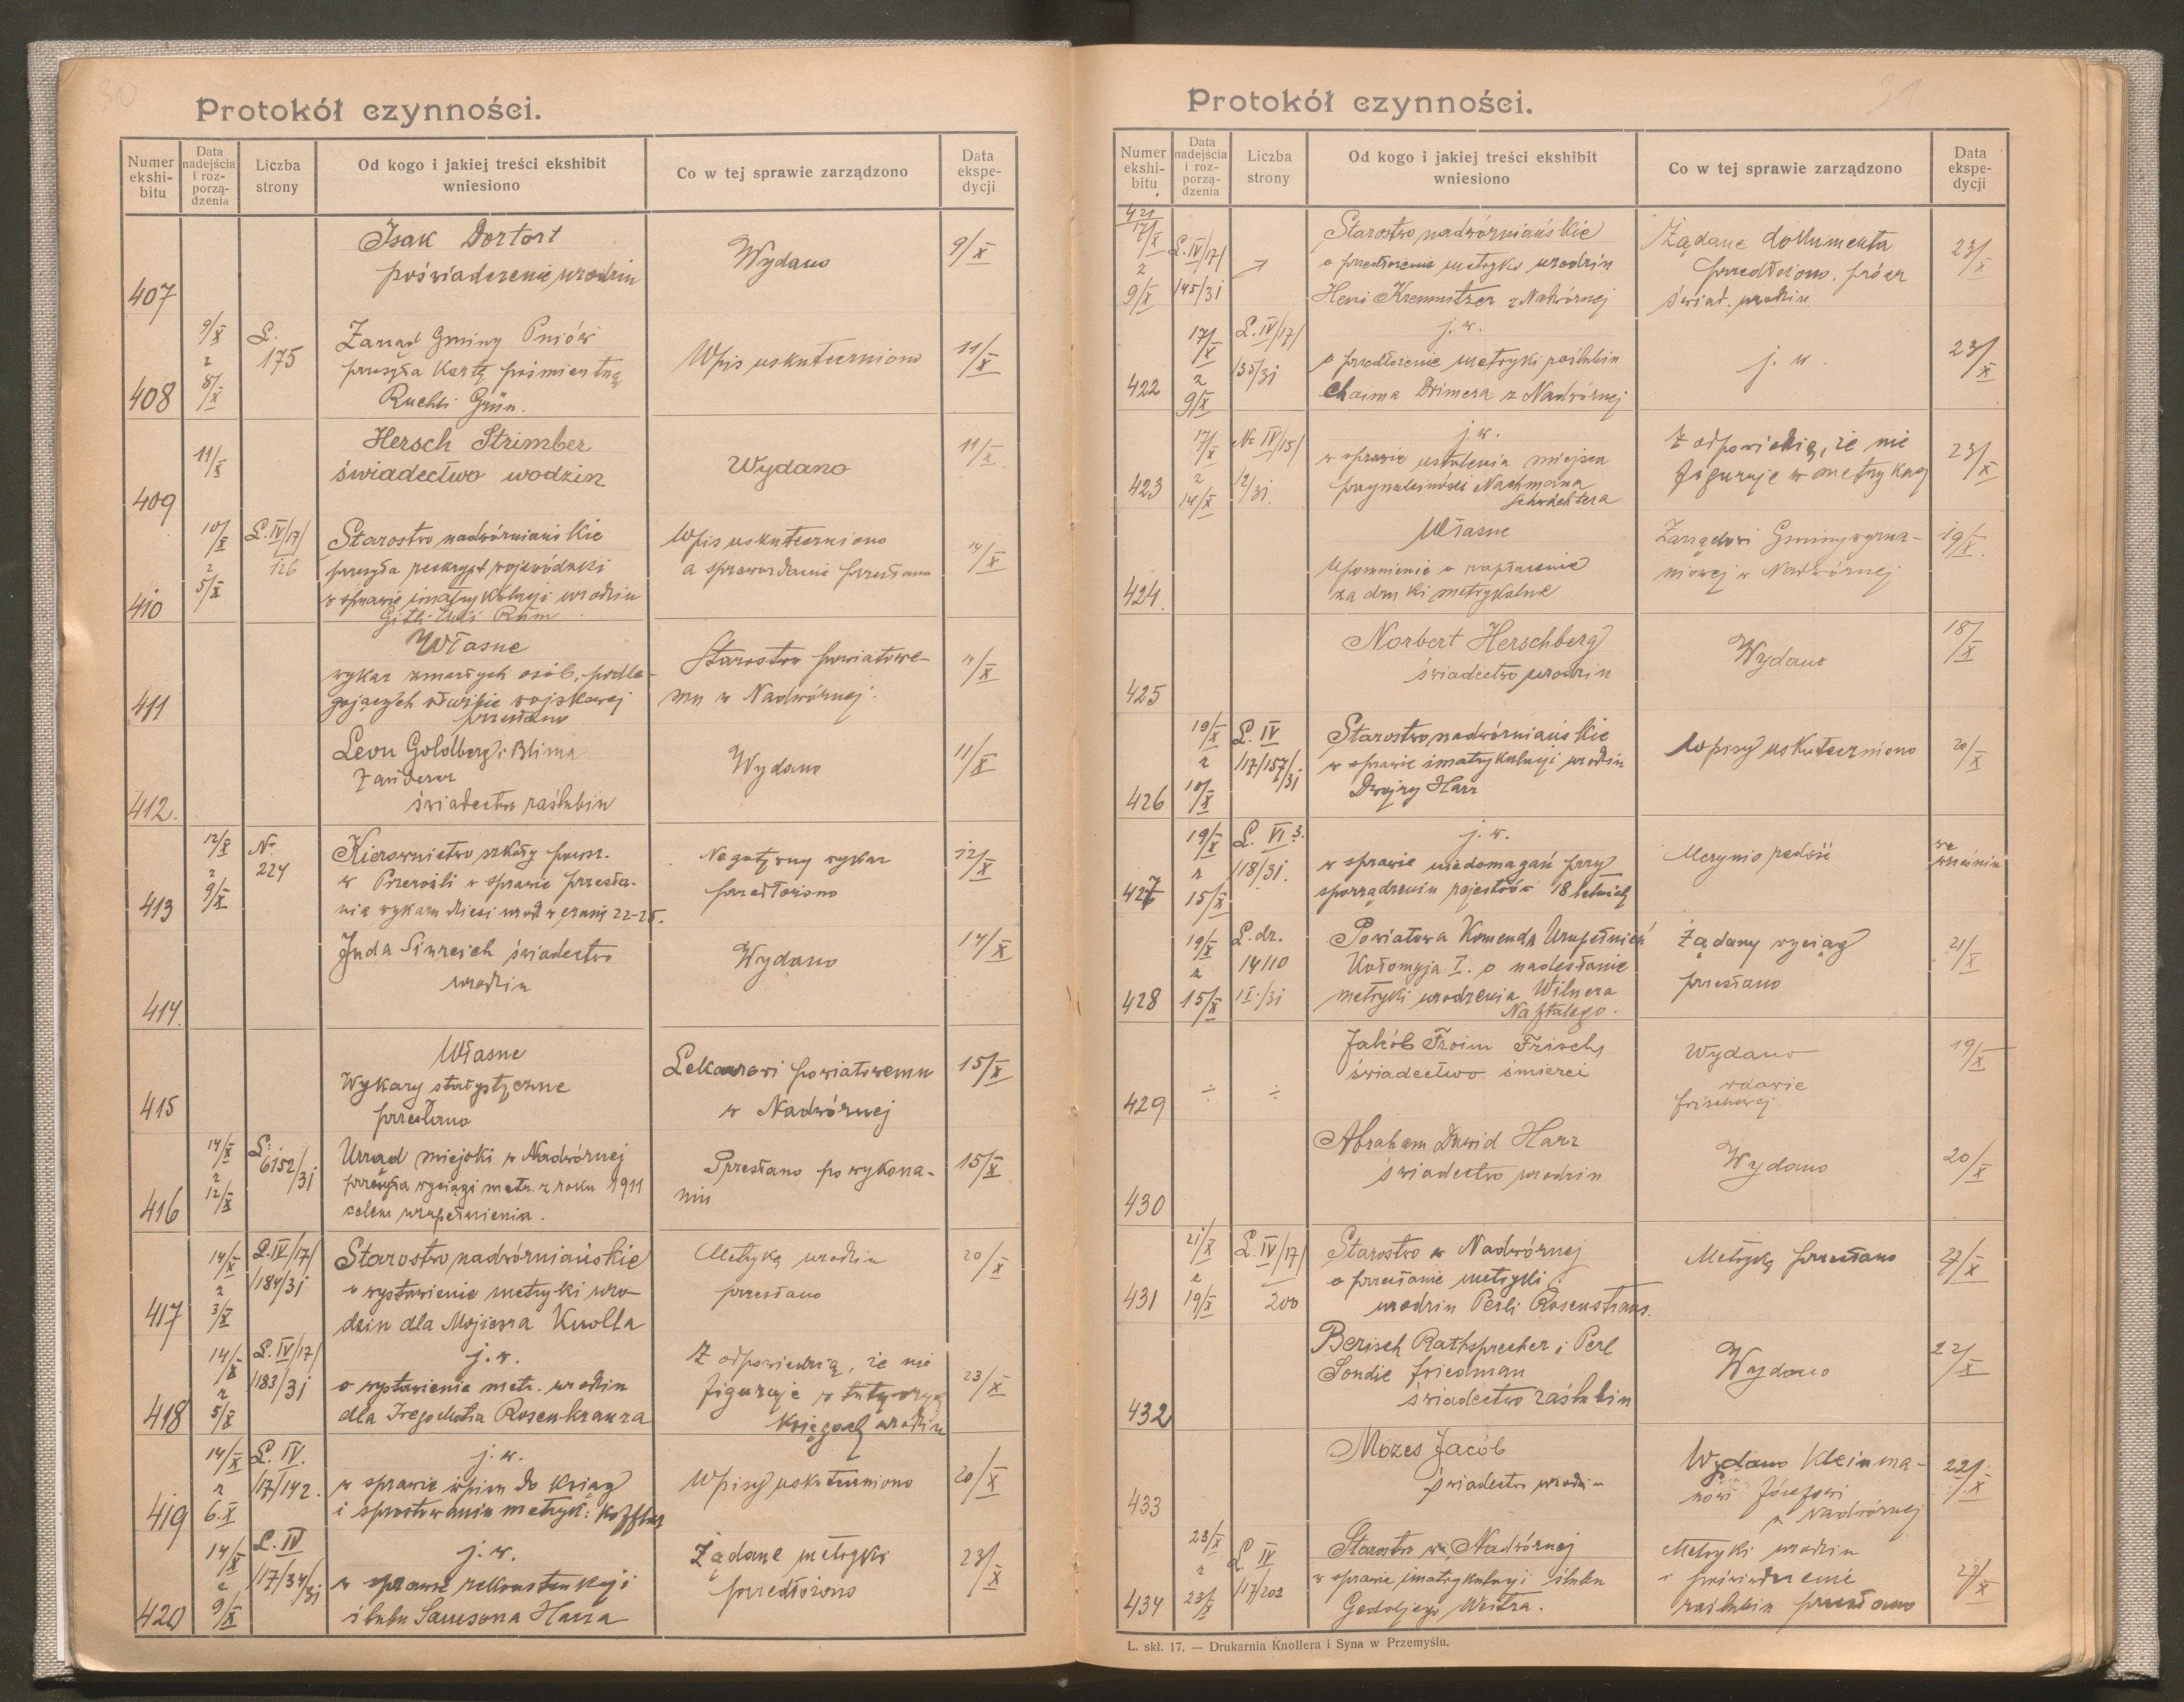 30
Protokół czynności.
Numer ekshi-bitu
Data nadejścia i roz-porzą-dzenia
Liczba strony
Od kogo i jakiej treści ekshibit wniesiono
Co w tej sprawie zarządzono
Data ekspe-dycji
407
Isak Dortort
poświadczenie urodzin
Wydano
9/X
408
9/X z 8/X
L. 175
Zarząd Gminy Pniów
przesyła kartę pośmiertną
Ruchli Grün.
Wpis uskuteczniono
11/X
409
11/X
Hersch Strimber
świadectwo urodzin
Wydano
11/X
410
10/X z 5/X
L. IV/17/ 126
Starostwo nadwórniańskie
przesyła reskrypt wojewódzki
w sprawie imatrykulacji urodzin
Wpis uskuteczniono
a sprawozdanie przesłano
14/X
411
Własne
wykaz zmarłych osób, podle-
gających służbie wojskowej
przesłano
Starostwu powiatowe-
mu w Nadwórnej.
14/X
412.
Leon Goldberg i Blima
świadectwo zaślubin
Wydano
11/X
413
12/X z 9/X
Nr. 224
Kierownictwo szkoły powsz.
w Przerośli w sprawie przesła-
nia wykazu dzieci urodz w czasie 22-25.
Negatywny wykaz
przedłożono
12/X
414.
Juda Sinreich świadectwo
urodzin
Wydano
14/X
415
Własne
Wykazy statystyczne
przesłano
Lekarzowi powiatowemu
w Nadwórnej
15/X
416
14/X z 12/X
L: 6152/31
Urząd miejski w Nadwórnej
przesyła wyciągi metr. z roku 1911
celem uzupełnienia.
Przesłano po wykona-
niu
15/X
417
14/X z 3/X
L. IV/17/ /184/31
Starostwo nadwórniańskie
o wystawienie metryki uro-
dzin dla Mojżesza Knolla
Metrykę urodzin
przesłano
20/X
418
14/X z 5/X
L. IV/17/ /183/31
j. w.
o wystawienie metr. urodzin
dla Rosenkranza
Z odpowiedzią, że nie
figuruje w
księgach urodzin
23/X
419
14/X z 6.X
L. IV. 17/142.
j. w.
w sprawie wpisu do ksiąg
i sprostowania metryk: Koffler
Wpisy uskuteczniono
20/X
420
14/X z 9/X
L. IV /17/34/31
j. w.
w sprawie rekonstrukcji
ślubu Samsona Harra
Żądane metryki
przedłożono
23/X
31
Protokół czynności.
Numer ekshi-bitu
Data nadejścia i roz-porzą-dzenia
Liczba strony
Od kogo i jakiej treści ekshibit wniesiono
Co w tej sprawie zarządzono
Data ekspe-dycji
421
17/X z 9/X
L. IV/17/ 145/31
Starostwo nadwórniańskie
o przedłożenie metryki urodzin
Heni Kremnitzer z Nadwórnej
Żądane dokumenta
przedłożono prócz
świad. urodzin
23/X
422
17/X z 9/X
L. IV/17/ 135/31
j. w.
o przedłożenie metryki zaślubin
Chaima Drimera z Nadwórnej
j. w.
23/X
423
17/X z 14/X
Nr IV/15/ /2/31.
j. w.
w sprawie ustalenia miejsca
przynależności Nachmana
Schächtera
Z odpowiedzią, że nie
figuruje w metrykach
23/X
424.
Własne
Upomnienie o zapłacenie
za druki metrykalne
Zarządowi Gminy wyzna-
niowej w Nadwórnej
19/X.
425
Norbert Herschberg
świadectwo urodzin
Wydano
18/X
426
19/X z 10/X
L. IV /17/157/31
Starostwo nadwórniańskie
w sprawie imatrykulacji urodzin
Dwojry Harr
Wpisy uskuteczniono
20/X
427
19/X z 15/X
L. VI 3. /18/31.
j. w.
w sprawie niedomagań przy
sporządzeniu rejestrów 18 letnich
428
19/X z 15/X
L. dz. 14110 II./31
Powiatowa Komenda Uzupełnień
Kołomyja I. o nadesłanie
metryki urodzenia Wilnera
Naftalego.
Żądany wyciąg
przesłano
21/X
429
÷ ÷
Jakób Froim Frisch
świadectwo śmierci
Wydano
wdowie
Frischowej
19/X
430
Abraham Dawid Harr
świadectwo urodzin
Wydano
20/X
431
21/X z 19/X
L. IV/17/ 200
Starostwo w Nadwórnej
o przesłanie metryki
urodzin Perli Rosenstraus.
Metrykę przesłano
27/X
432
Berisch Rathsprecher i Perl
Sondie Friedman
świadectwo zaślubin
Wydano
22/X
433
Mozes Jacób
świadectwo urodzin
Wydano Kleinma-
nowi Józefowi
w Nadwórnej
22/X
434
23/X z 23/X
L. IV /17/202
Starostwo w Nadwórnej
w sprawie imatrykulacji ślubu
Gedaljego Weitza.
Metryki urodzin
i poświadczenie
zaślubin przesłano
27/X
L. skł. 17. — Drukarnia Knollera i Syna w Przemyślu.